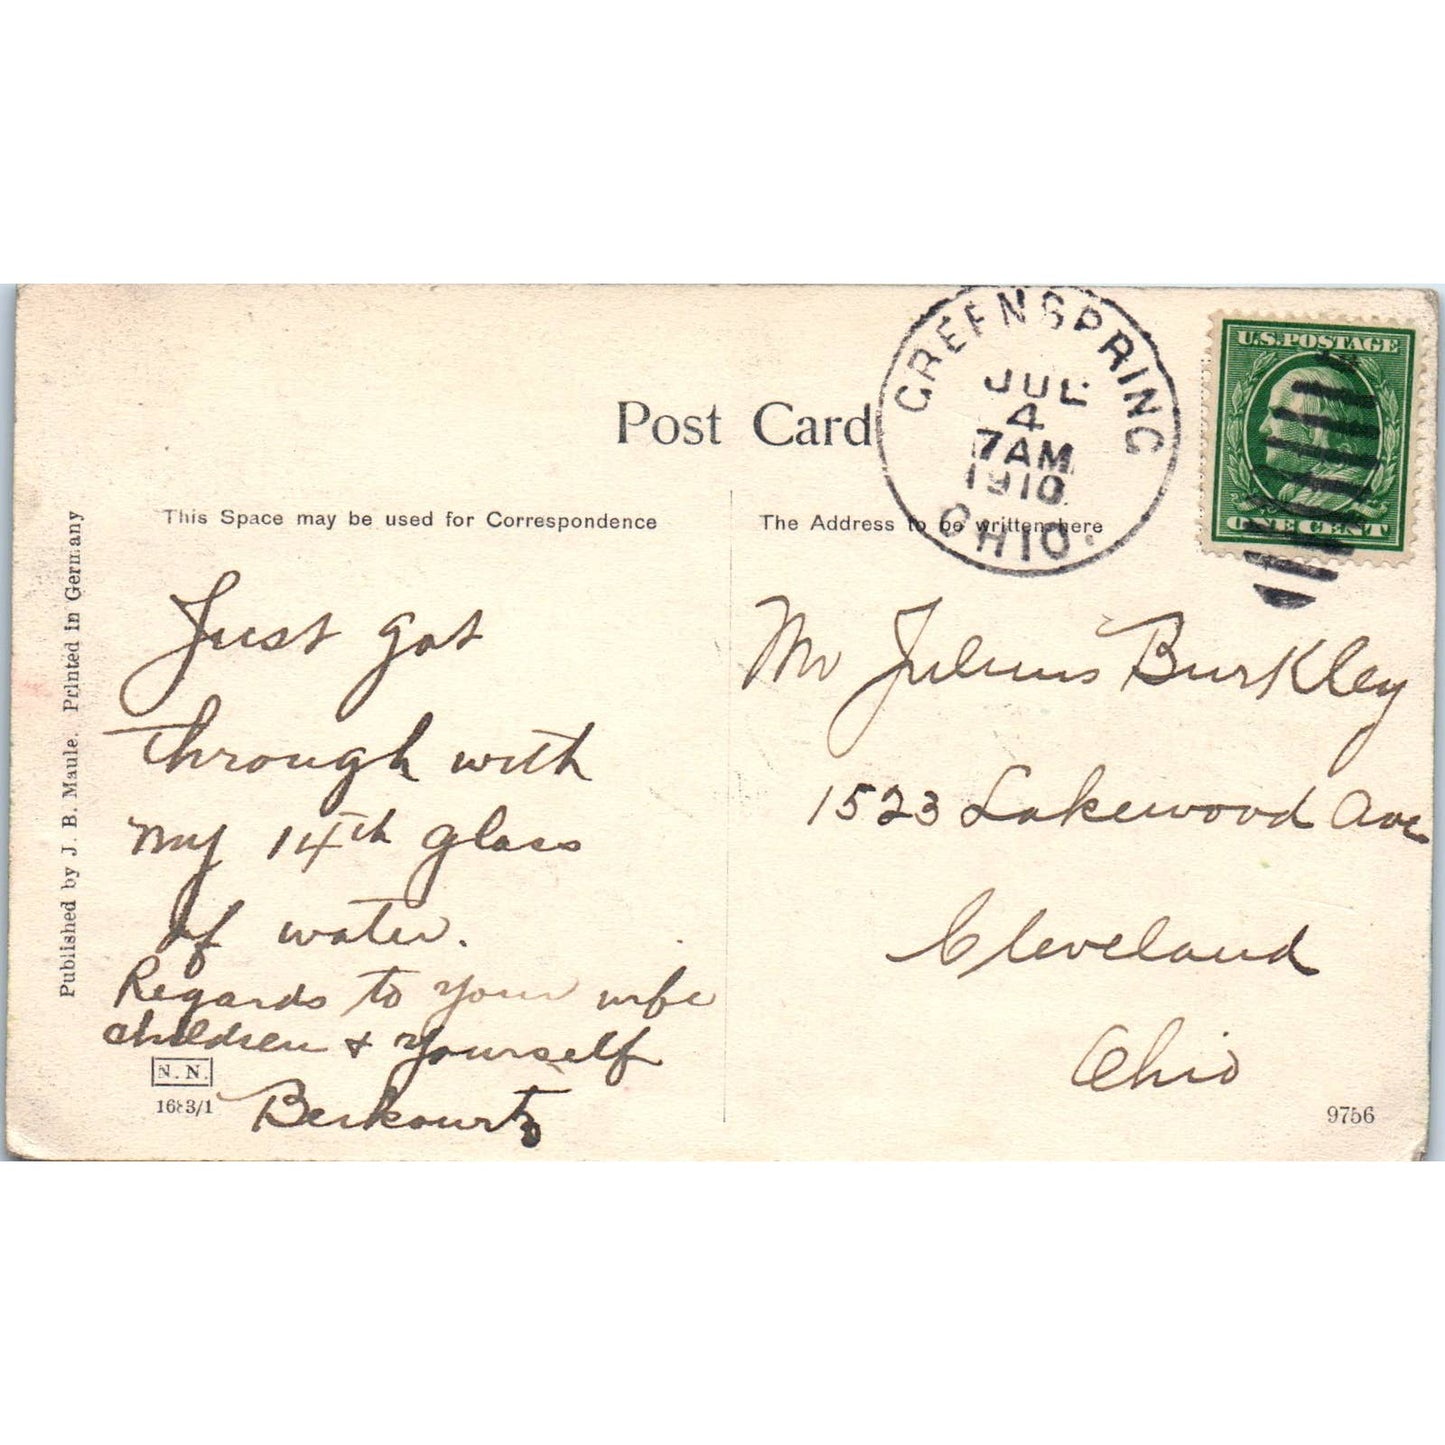 Post Card
GREENSPRING
JUL
4
7AM
1910
OHIO.
U.S. POSTAGE
ONE CENT
This Space may be used for Correspondence
The Address to be written here
Just got
through with
my 14th glass
of water.
Regards to your wife
children & yourself
Berkowitz
Mr Julius Burkley
1523 Lakewood Ave
Cleveland
Ohio
Published by J. B. Maule. Printed in Germany
N. N.
1683/1
9756